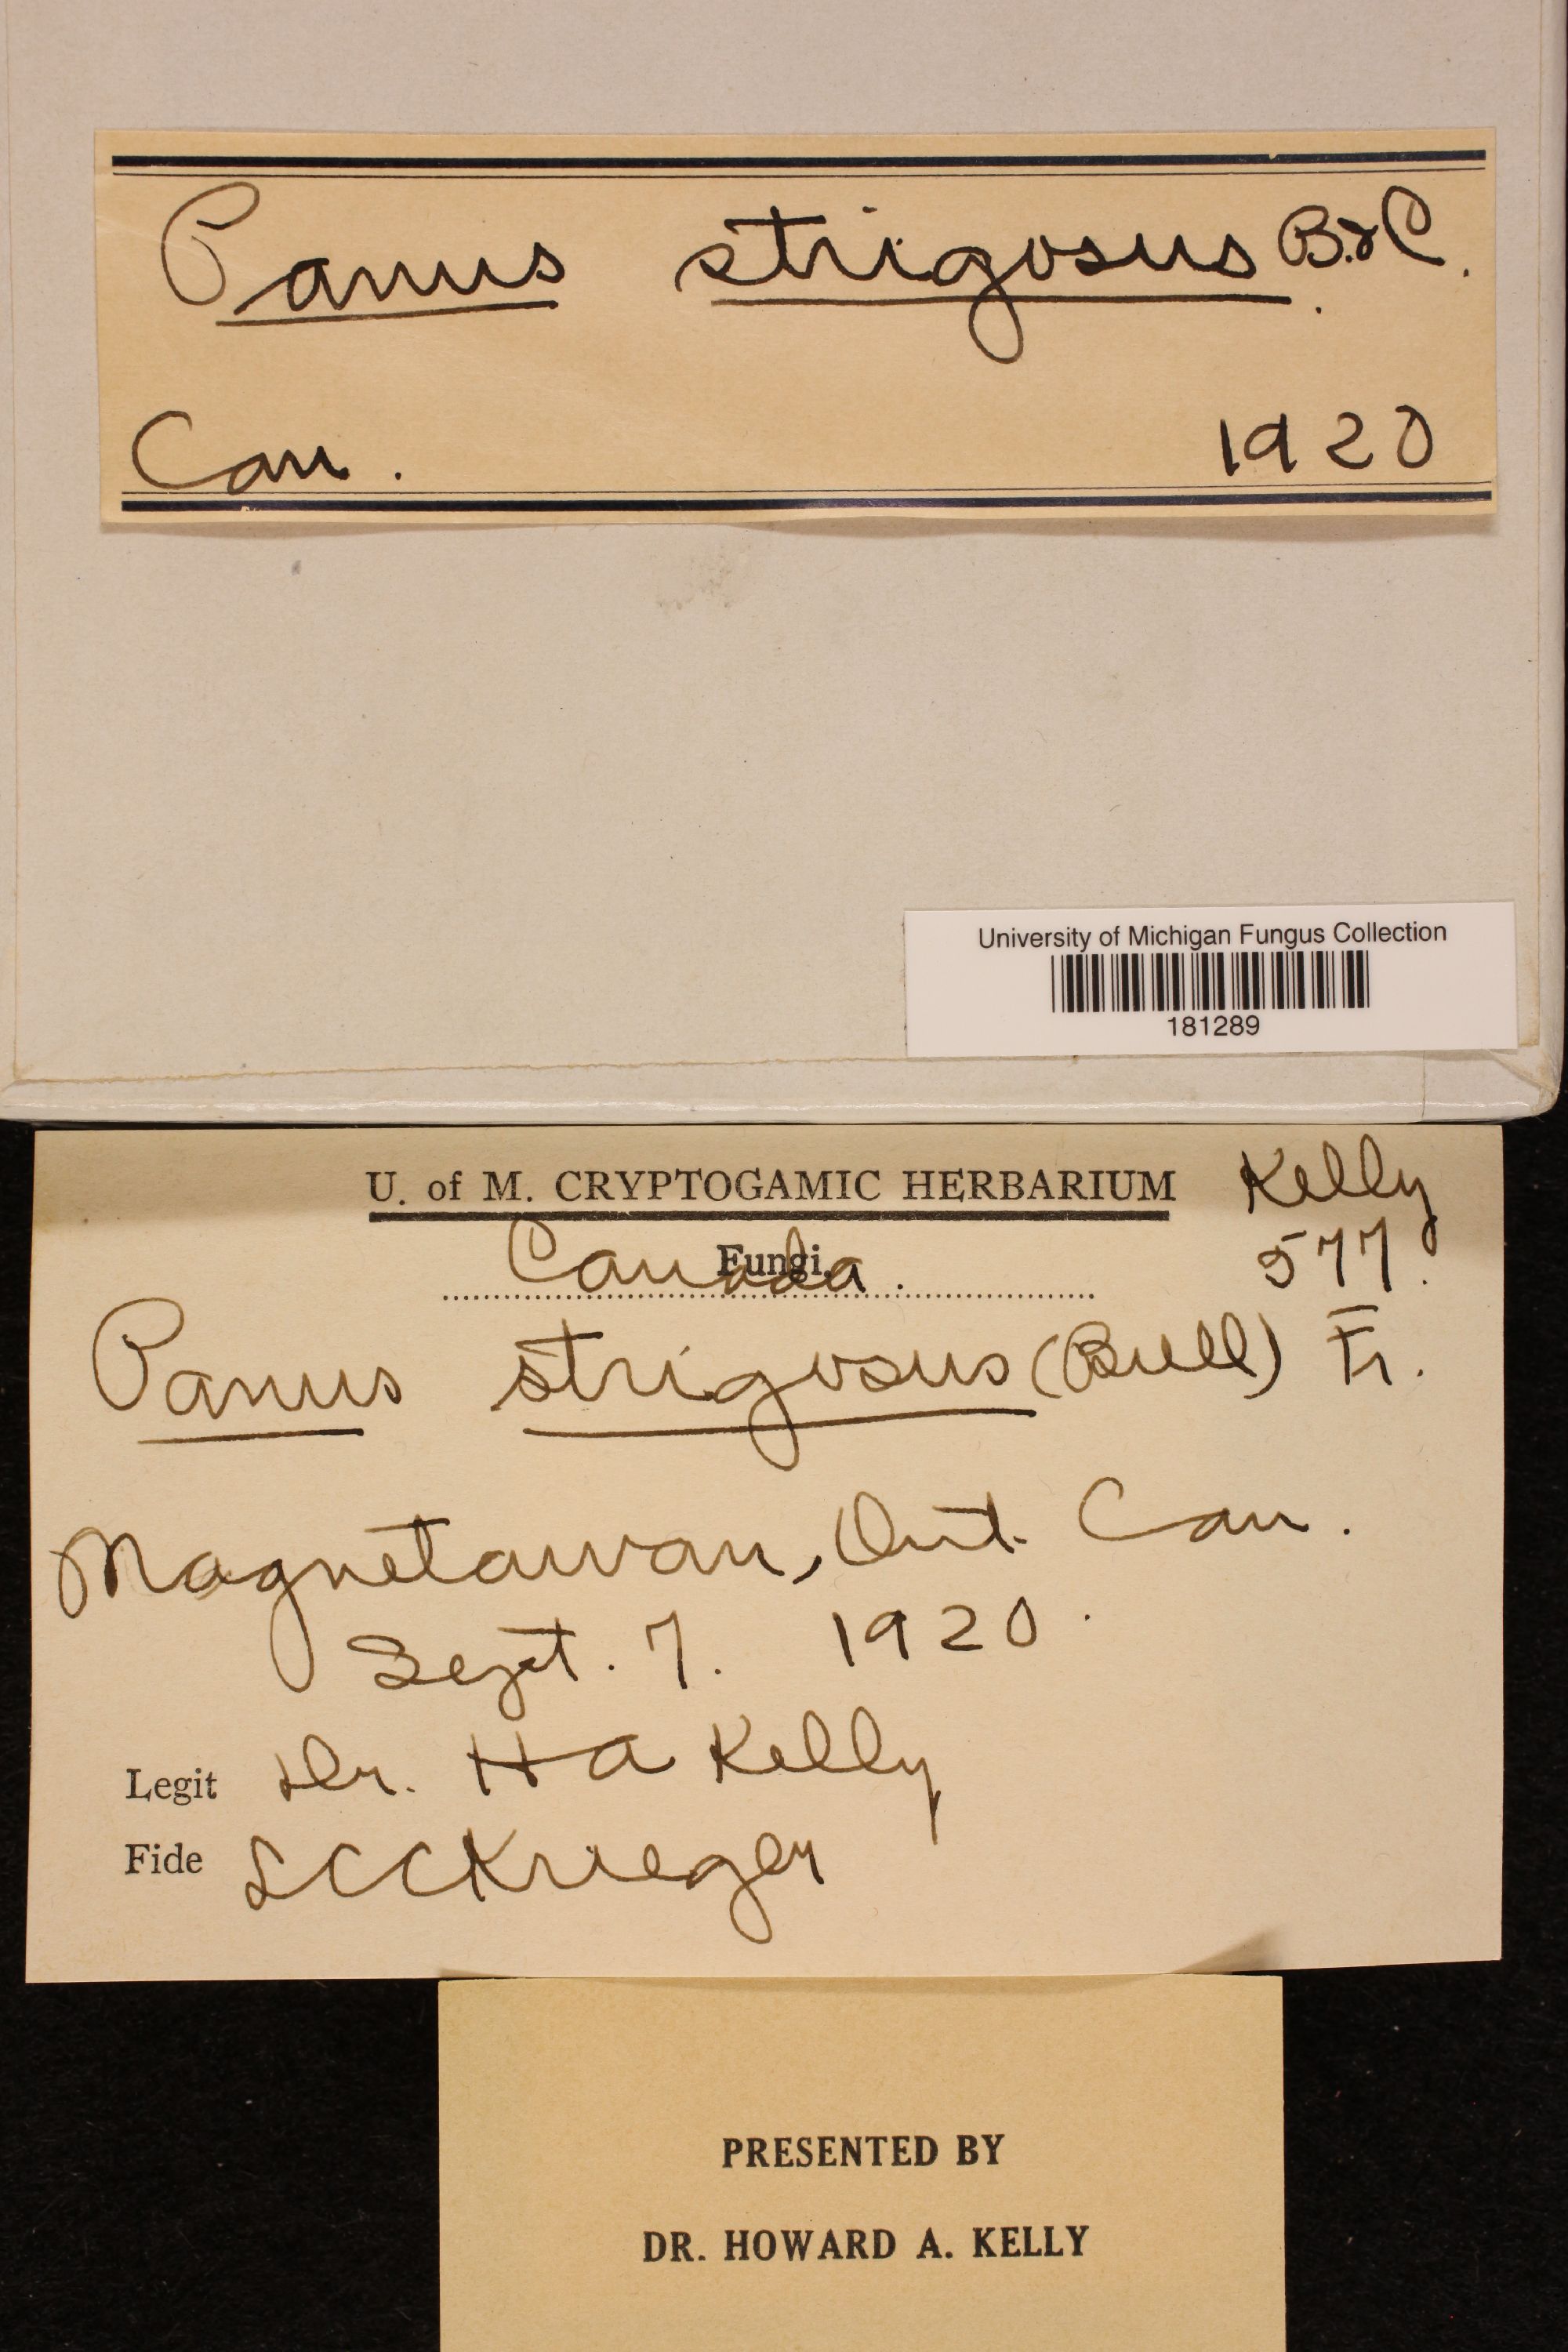 Panus strigosus B. & C.
Can. 1920
University of Michigan Fungus Collection
181289
U. of M. CRYPTOGAMIC HERBARIUM Kelly
Fungi, Canada. 577.
Panus strigosus (Bull) Fr.
Magnetawan, Ont. Can.
Sept. 7. 1920.
Legit Dr. H A Kelly
Fide L C C Krieger
PRESENTED BY
DR. HOWARD A. KELLY